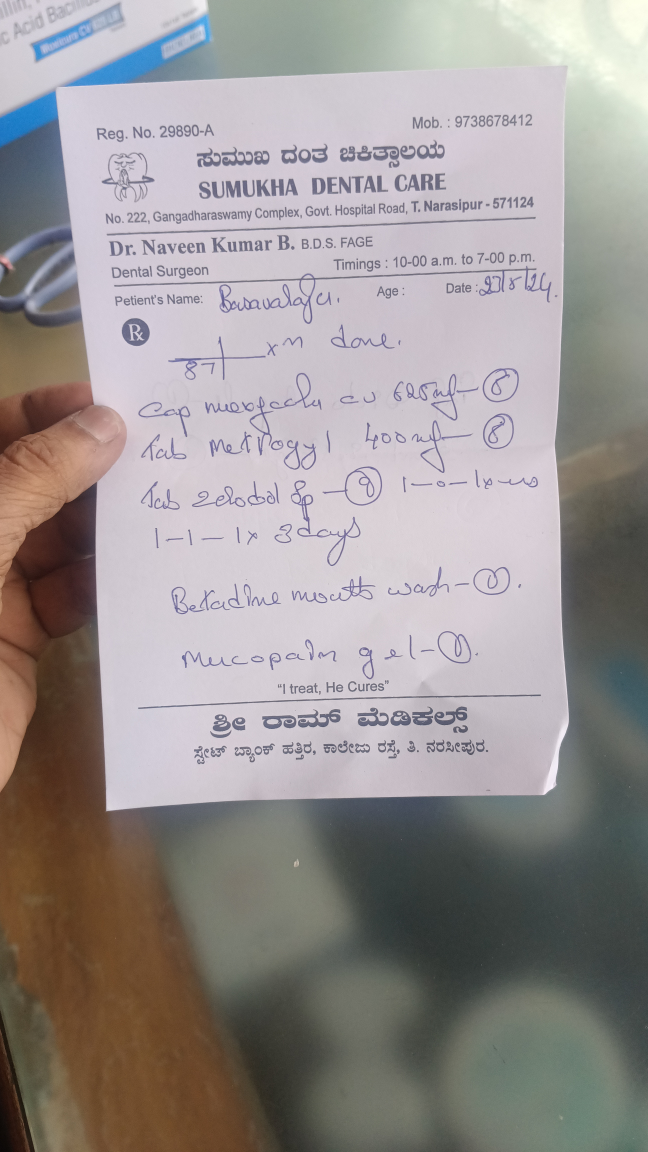 c Acid Bacil
Reg. No. 29890-A
Mob. : 9738678412
ಸುಮುಖ ದಂತ ಚಿಕಿತ್ಸಾಲಯ
SUMUKHA DENTAL CARE
No. 222, Gangadharaswamy Complex, Govt. Hospital Road, T. Narasipur - 571124
Dr. Naveen Kumar B. B.D.S. FAGE
Dental Surgeon
Timings : 10-00 a.m. to 7-00 p.m.
Petient's Name:
Age :
Date : 27/8/24.
Rx
87 done.
Cap cv 625mg - 8
Tab Metrogyl 400mg - 8
Tab sp - 9 1-0-1x
1-1-1x 3days
Betadine mouth wash - 1.
Mucopain gel - 1.
"I treat, He Cures"
ಶ್ರೀ ರಾಮ್ ಮೆಡಿಕಲ್ಸ್
ಸ್ಟೇಟ್ ಬ್ಯಾಂಕ್ ಹತ್ತಿರ, ಕಾಲೇಜು ರಸ್ತೆ, ತಿ. ನರಸೀಪುರ.